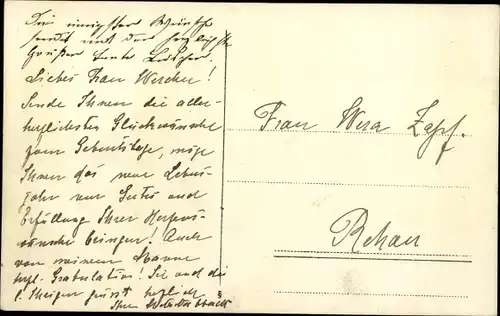 Die innigsten Wünsche
sendet und die herzlichste
Grüße Tante
Liebes Frau
Sende Ihnen die aller-
herzlichsten Glückwünsche
zum Geburtstage, möge
Ihnen das neue Lebens-
jahr nur Gutes und
Erfüllung Ihrer Herzens-
wünsche bringen! Auch
von meinem Manne
herzl. Gratulation! Sie und die
l. Ihrigen grüsst herzlich
Ihre
Frau Wera Zapf.
Rehau